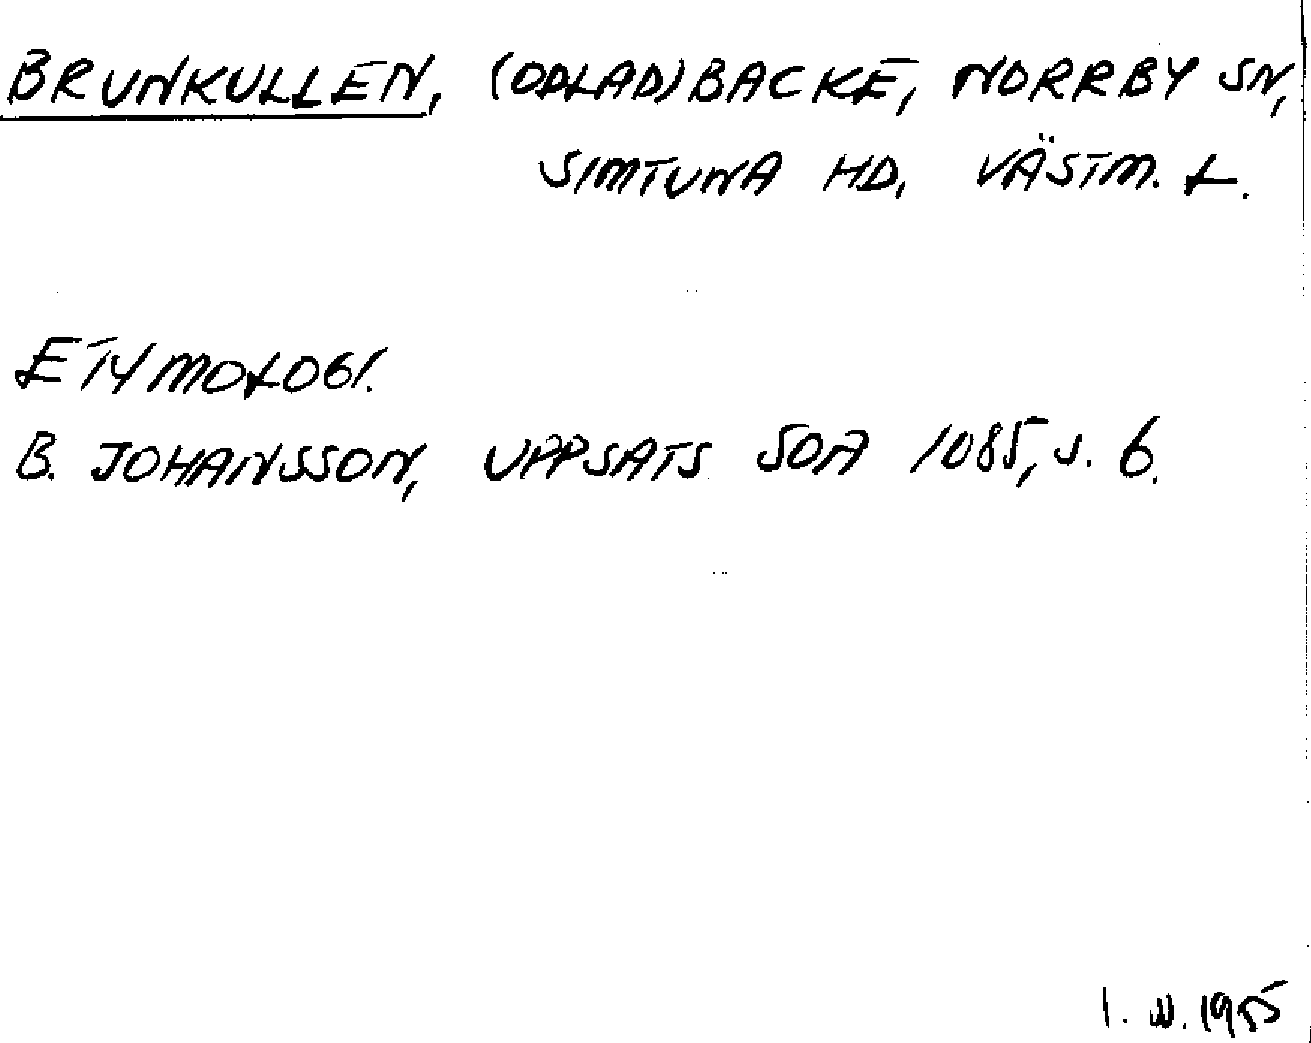 BRUNKULLEN, (ODLAD) BACKE, NORRBY SN,
SIMTUNA HD, VÄSTM. L.
ETYMOLOGI.
B. JOHANSSON, UPPSATS SOA 1085, S. 6.
I. W. 1955